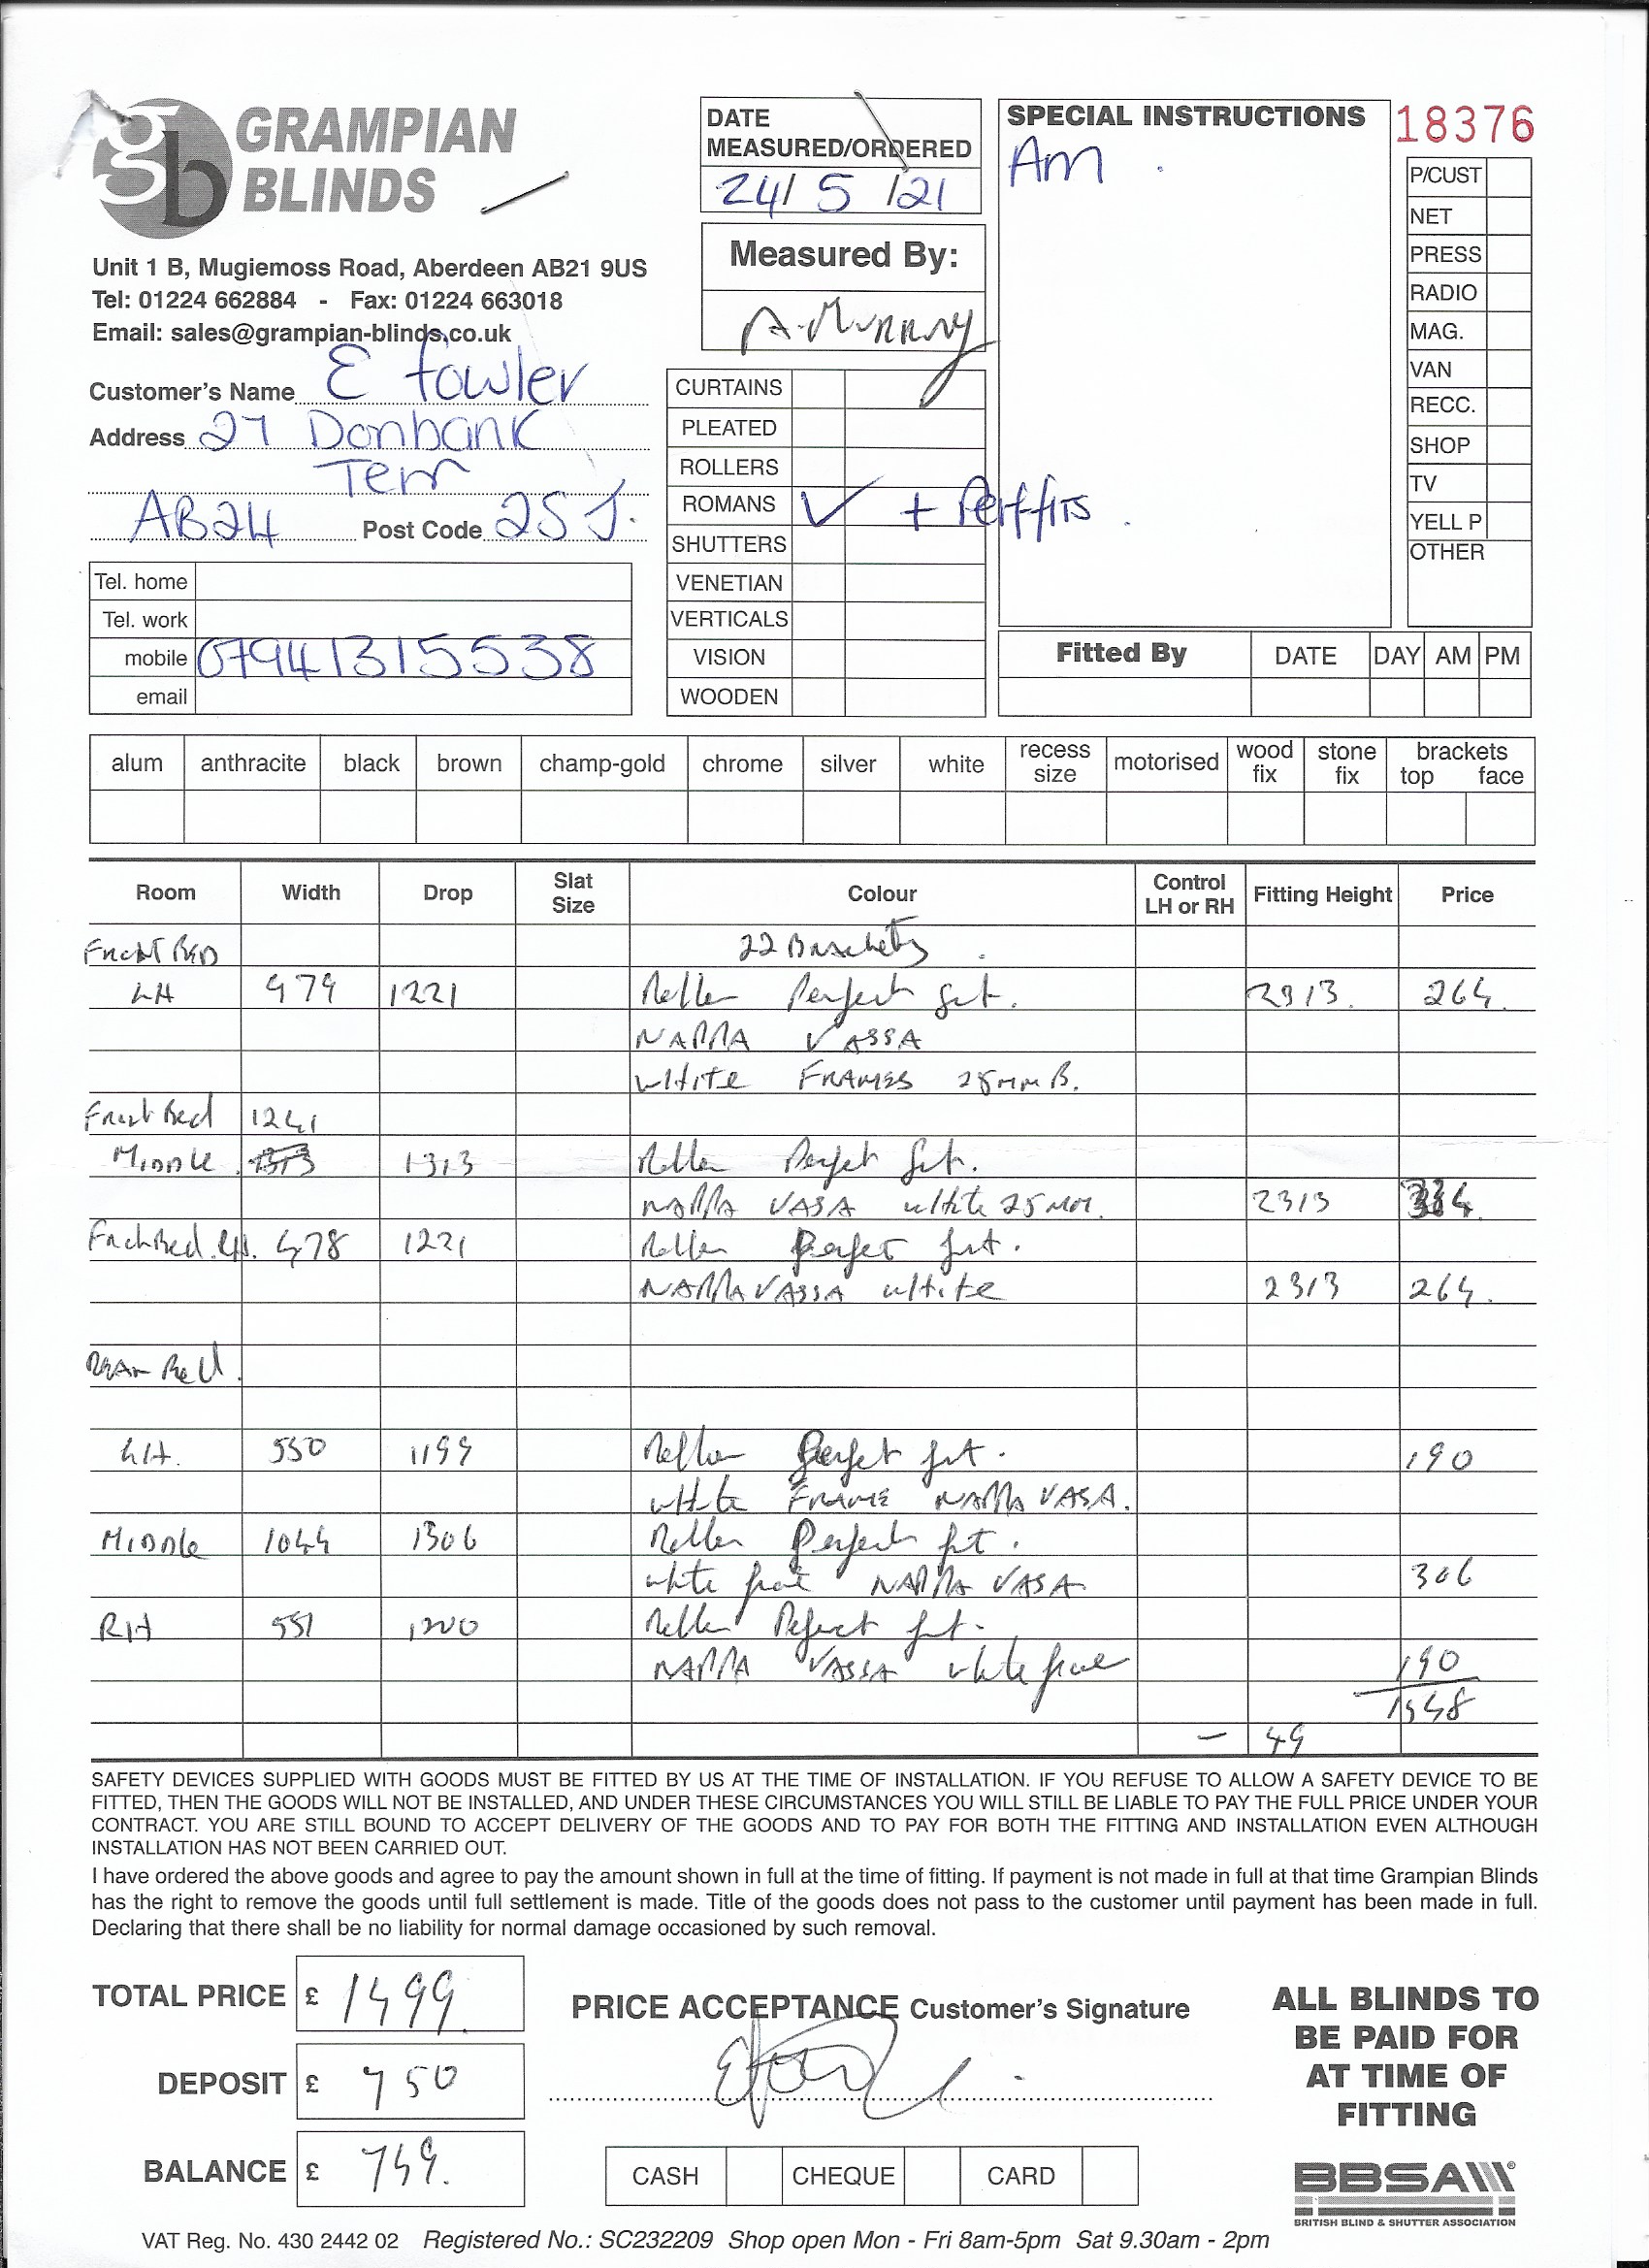 gb GRAMPIAN BLINDS
Unit 1 B, Mugiemoss Road, Aberdeen AB21 9US
Tel: 01224 662884 - Fax: 01224 663018
Email: sales@grampian-blinds.co.uk
DATE MEASURED/ORDERED
24/5/21
Measured By:
A. Murray
SPECIAL INSTRUCTIONS
Am
18376
P/CUST
NET
PRESS
RADIO
MAG.
VAN
RECC.
SHOP
TV
YELL P
OTHER
Customer's Name E Fowler
Address 27 Donbank
Terr
AB24 Post Code 2SJ.
Tel. home
Tel. work
mobile 07941315538
email
CURTAINS
PLEATED
ROLLERS
ROMANS ✓ + Perffits.
SHUTTERS
VENETIAN
VERTICALS
VISION
WOODEN
Fitted By DATE DAY AM PM
alum anthracite black brown champ-gold chrome silver white recess size motorised wood fix stone fix brackets top face
Room Width Drop Slat Size Colour Control LH or RH Fitting Height Price
Front Bed 22 Brackets.
LH 479 1221 Roller Perfect fit. 2313. 264.
NAPPA VASSA
WHITE FRAMES 25mm B.
Front Bed 1241
Middle 1313 Roller Perfect fit.
NAPPA VASA white 25mm. 2313 334.
RH. 478 1221 Roller Perfect fit.
NAPPA VASSA white 2313 264.
Rear Bed.
LH. 550 1199 Roller Perfect fit. 190
white FRAME NAPPA VASA.
Middle 1044 1306 Roller Perfect fit.
white frame NAPPA VASA 306
RH 551 1200 Roller Perfect fit.
NAPPA VASSA white frame 190
1548
- 49
SAFETY DEVICES SUPPLIED WITH GOODS MUST BE FITTED BY US AT THE TIME OF INSTALLATION. IF YOU REFUSE TO ALLOW A SAFETY DEVICE TO BE
FITTED, THEN THE GOODS WILL NOT BE INSTALLED, AND UNDER THESE CIRCUMSTANCES YOU WILL STILL BE LIABLE TO PAY THE FULL PRICE UNDER YOUR
CONTRACT. YOU ARE STILL BOUND TO ACCEPT DELIVERY OF THE GOODS AND TO PAY FOR BOTH THE FITTING AND INSTALLATION EVEN ALTHOUGH
INSTALLATION HAS NOT BEEN CARRIED OUT.
I have ordered the above goods and agree to pay the amount shown in full at the time of fitting. If payment is not made in full at that time Grampian Blinds
has the right to remove the goods until full settlement is made. Title of the goods does not pass to the customer until payment has been made in full.
Declaring that there shall be no liability for normal damage occasioned by such removal.
TOTAL PRICE £ 1499.
DEPOSIT £ 750
BALANCE £ 749.
PRICE ACCEPTANCE Customer's Signature
CASH CHEQUE CARD
ALL BLINDS TO
BE PAID FOR
AT TIME OF
FITTING
BBSA
BRITISH BLIND & SHUTTER ASSOCIATION
VAT Reg. No. 430 2442 02 Registered No.: SC232209 Shop open Mon - Fri 8am-5pm Sat 9.30am - 2pm